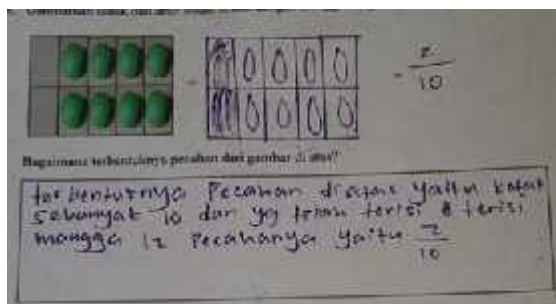 2
10
Bagaimana terbentuknya pecahan dari gambar di atas?
terbentuknya Pecahan diatas yaitu kotak
sebanyak 10 dan yg telah terisi 8 terisi
mangga 12 Pecahanya yaitu 2
10